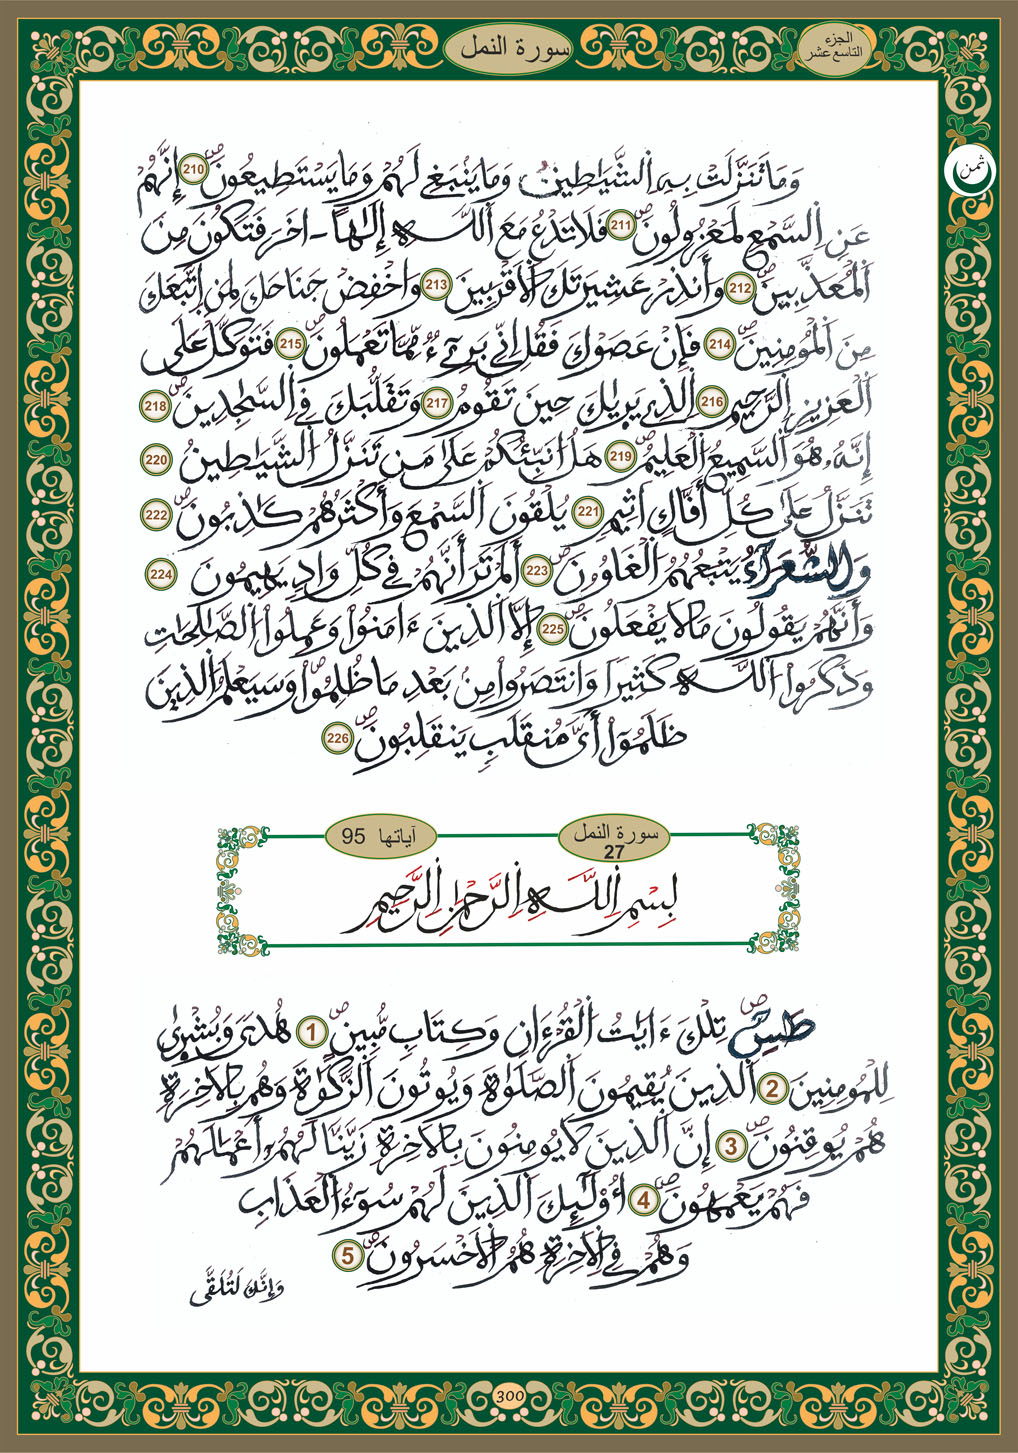 الجزء
التاسع عشر
سورة النمل
ثمن
وَمَا تَنَزَّلَتْ بِهِ اِ۬لشَّيَٰطِينُ وَمَا يَنۢبَغِے لَهُمْ وَمَا يَسْتَطِيعُونَۖ 210 إِنَّهُمْ
عَنِ اِ۬لسَّمْعِ لَمَعْزُولُونَۖ 211 فَلَا تَدْعُ مَعَ اَ۬للَّهِ إِلَٰهاً ـ اخَرَ فَتَكُونَ مِنَ
اَ۬لْمُعَذَّبِينَۖ 212 وَأَنذِرْ عَشِيرَتَكَ اَ۬لَاقْرَبِينَ 213 وَاخْفِضْ جَنَاحَكَ لِمَنِ اِ۪تَّبَعَكَ
مِنَ اَ۬لْمُومِنِينَۖ 214 فَإِنْ عَصَوْكَ فَقُلِ اِنِّے بَرِےٓءٌ مِّمَّا تَعْمَلُونَۖ 215 فَتَوَكَّلْ عَلَى
اَ۬لْعَزِيزِ اِ۬لرَّحِيمِ 216 اِ۬لذِے يَر۪يٰكَ حِينَ تَقُومُ 217 وَتَقَلُّبَكَ فِے اِ۬لسَّٰجِدِينَۖ 218
إِنَّهُۥ هُوَ اَ۬لسَّمِيعُ اُ۬لْعَلِيمُۖ 219 هَلُ ا۟نَبِّئُكُمْ عَلَىٰ مَن تَنَزَّلُ اُ۬لشَّيَٰطِينُ 220
تَنَزَّلُ عَلَىٰ كُلِّ أَفَّاكٍ اَثِيمٖ 221 يُلْقُونَ اَ۬لسَّمْعَ وَأَكْثَرُهُمْ كَٰذِبُونَۖ 222
وَالشُّعَرَآءُ يَتْبَعُهُمُ اُ۬لْغَاوُۥنَۖ 223 أَلَمْ تَرَ أَنَّهُمْ فِے كُلِّ وَادٖ يَهِيمُونَ 224
وَأَنَّهُمْ يَقُولُونَ مَا لَا يَفْعَلُونَۖ 225 إِلَّا اَ۬لذِينَ ءَامَنُواْ وَعَمِلُواْ اُ۬لصَّٰلِحَٰتِ
وَذَكَرُواْ اُ۬للَّهَ كَثِيراٗ وَانتَصَرُواْ مِنۢ بَعْدِ مَا ظُلِمُواْۖ وَسَيَعْلَمُ اُ۬لذِينَ
ظَلَمُوٓاْ أَيَّ مُنقَلَبٖ يَنقَلِبُونَۖ 226
سورة النمل
27
آياتها 95
بِسْمِ اِ۬للَّهِ اِ۬لرَّحْمَٰنِ اِ۬لرَّحِيمِ
طَسِٓۖ تِلْكَ ءَايَٰتُ اُ۬لْقُرْءَانِ وَكِتَابٖ مُّبِينٍۖ 1 هُدىٗ وَبُشْر۪ىٰ
لِلْمُومِنِينَ 2 اَ۬لذِينَ يُقِيمُونَ اَ۬لصَّلَوٰةَ وَيُوتُونَ اَ۬لزَّكَوٰةَ وَهُم بِالَاخِرَةِ
هُمْ يُوقِنُونَۖ 3 إِنَّ اَ۬لذِينَ لَا يُومِنُونَ بِالَاخِرَةِ زَيَّنَّا لَهُمُۥٓ أَعْمَٰلَهُمْ
فَهُمْ يَعْمَهُونَۖ 4 أُوْلَٰٓئِكَ اَ۬لذِينَ لَهُمْ سُوٓءُ اُ۬لْعَذَابِ
وَهُمْ فِے اِ۬لَاخِرَةِ هُمُ اُ۬لَاخْسَرُونَۖ 5
وَإِنَّكَ لَتُلَقَّى
300